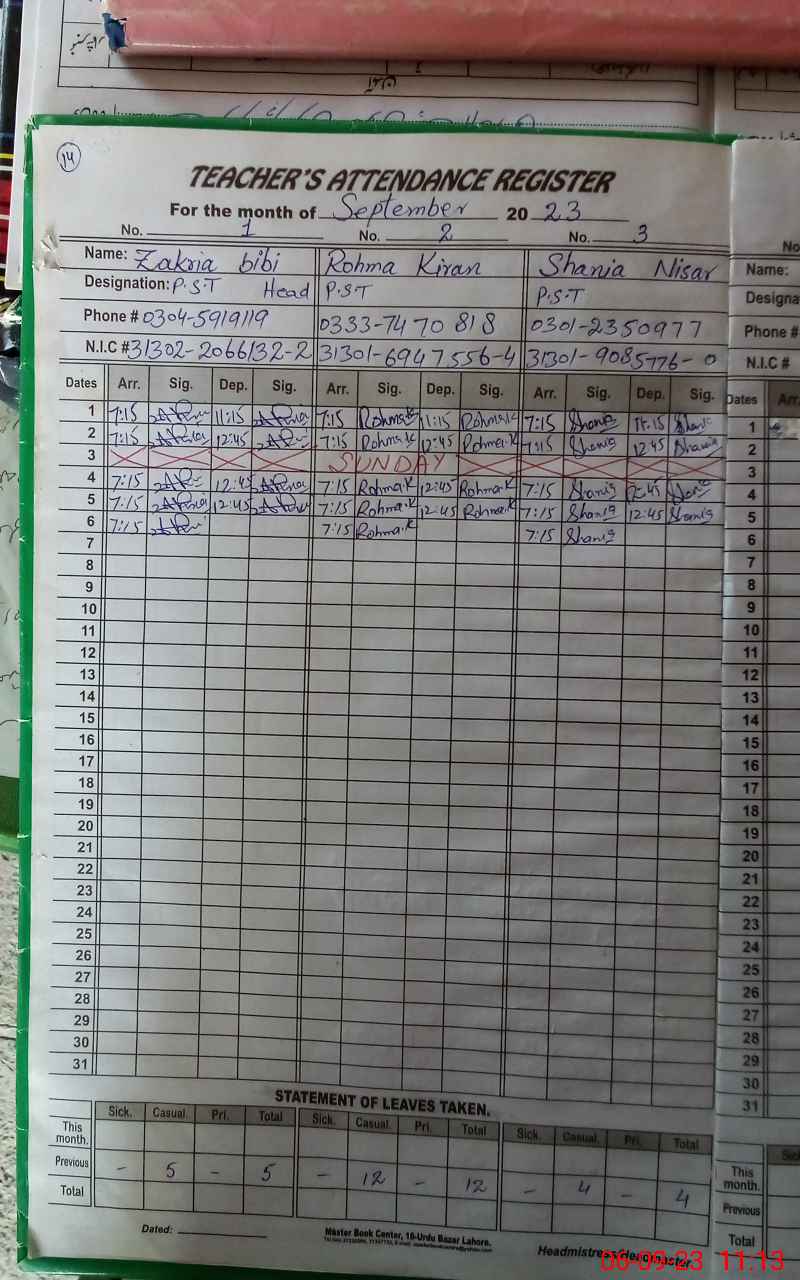 14
TEACHER'S ATTENDANCE REGISTER
For the month of September 2023
No. 1 No. 2 No. 3
Name: Zakria bibi Rohma Kiran Shania Nisar
Designation: P.S.T Head P.S.T P.S.T
Phone # 0304-5919119 0333-7470818 0301-2350977
N.I.C # 31302-2066132-2 31301-6947556-4 31301-9085776-0
Dates Arr. Sig. Dep. Sig. Arr. Sig. Dep. Sig. Arr. Sig. Dep. Sig.
1 7:15 11:15 7:15 Rohma.K 11:15 Rohma.K 7:15 Shania 11:15 Shania
2 7:15 12:45 7:15 Rohma.K 12:45 Rohma.K 7:15 Shania 12:45 Shania
3 SUNDAY
4 7:15 12:45 7:15 Rohma.K 12:45 Rohma.K 7:15 Shania 12:45 Shania
5 7:15 12:45 7:15 Rohma.K 12:45 Rohma.K 7:15 Shania 12:45 Shania
6 7:15 7:15 Rohma.K 7:15 Shania
7
8
9
10
11
12
13
14
15
16
17
18
19
20
21
22
23
24
25
26
27
28
29
30
31
STATEMENT OF LEAVES TAKEN.
Sick. Casual. Pri. Total Sick. Casual. Pri. Total Sick. Casual. Pri. Total
This month.
Previous - 5 - 5 - 12 - 12 - 4 - 4
Total
Dated:
Master Book Center, 16-Urdu Bazar Lahore.
Headmistress/Headmaster
No
Name:
Designa
Phone #
N.I.C #
Dates Arr.
1
2
3
4
5
6
7
8
9
10
11
12
13
14
15
16
17
18
19
20
21
22
23
24
25
26
27
28
29
30
31
Sick
This month.
Previous
Total
06-09-23 11:13